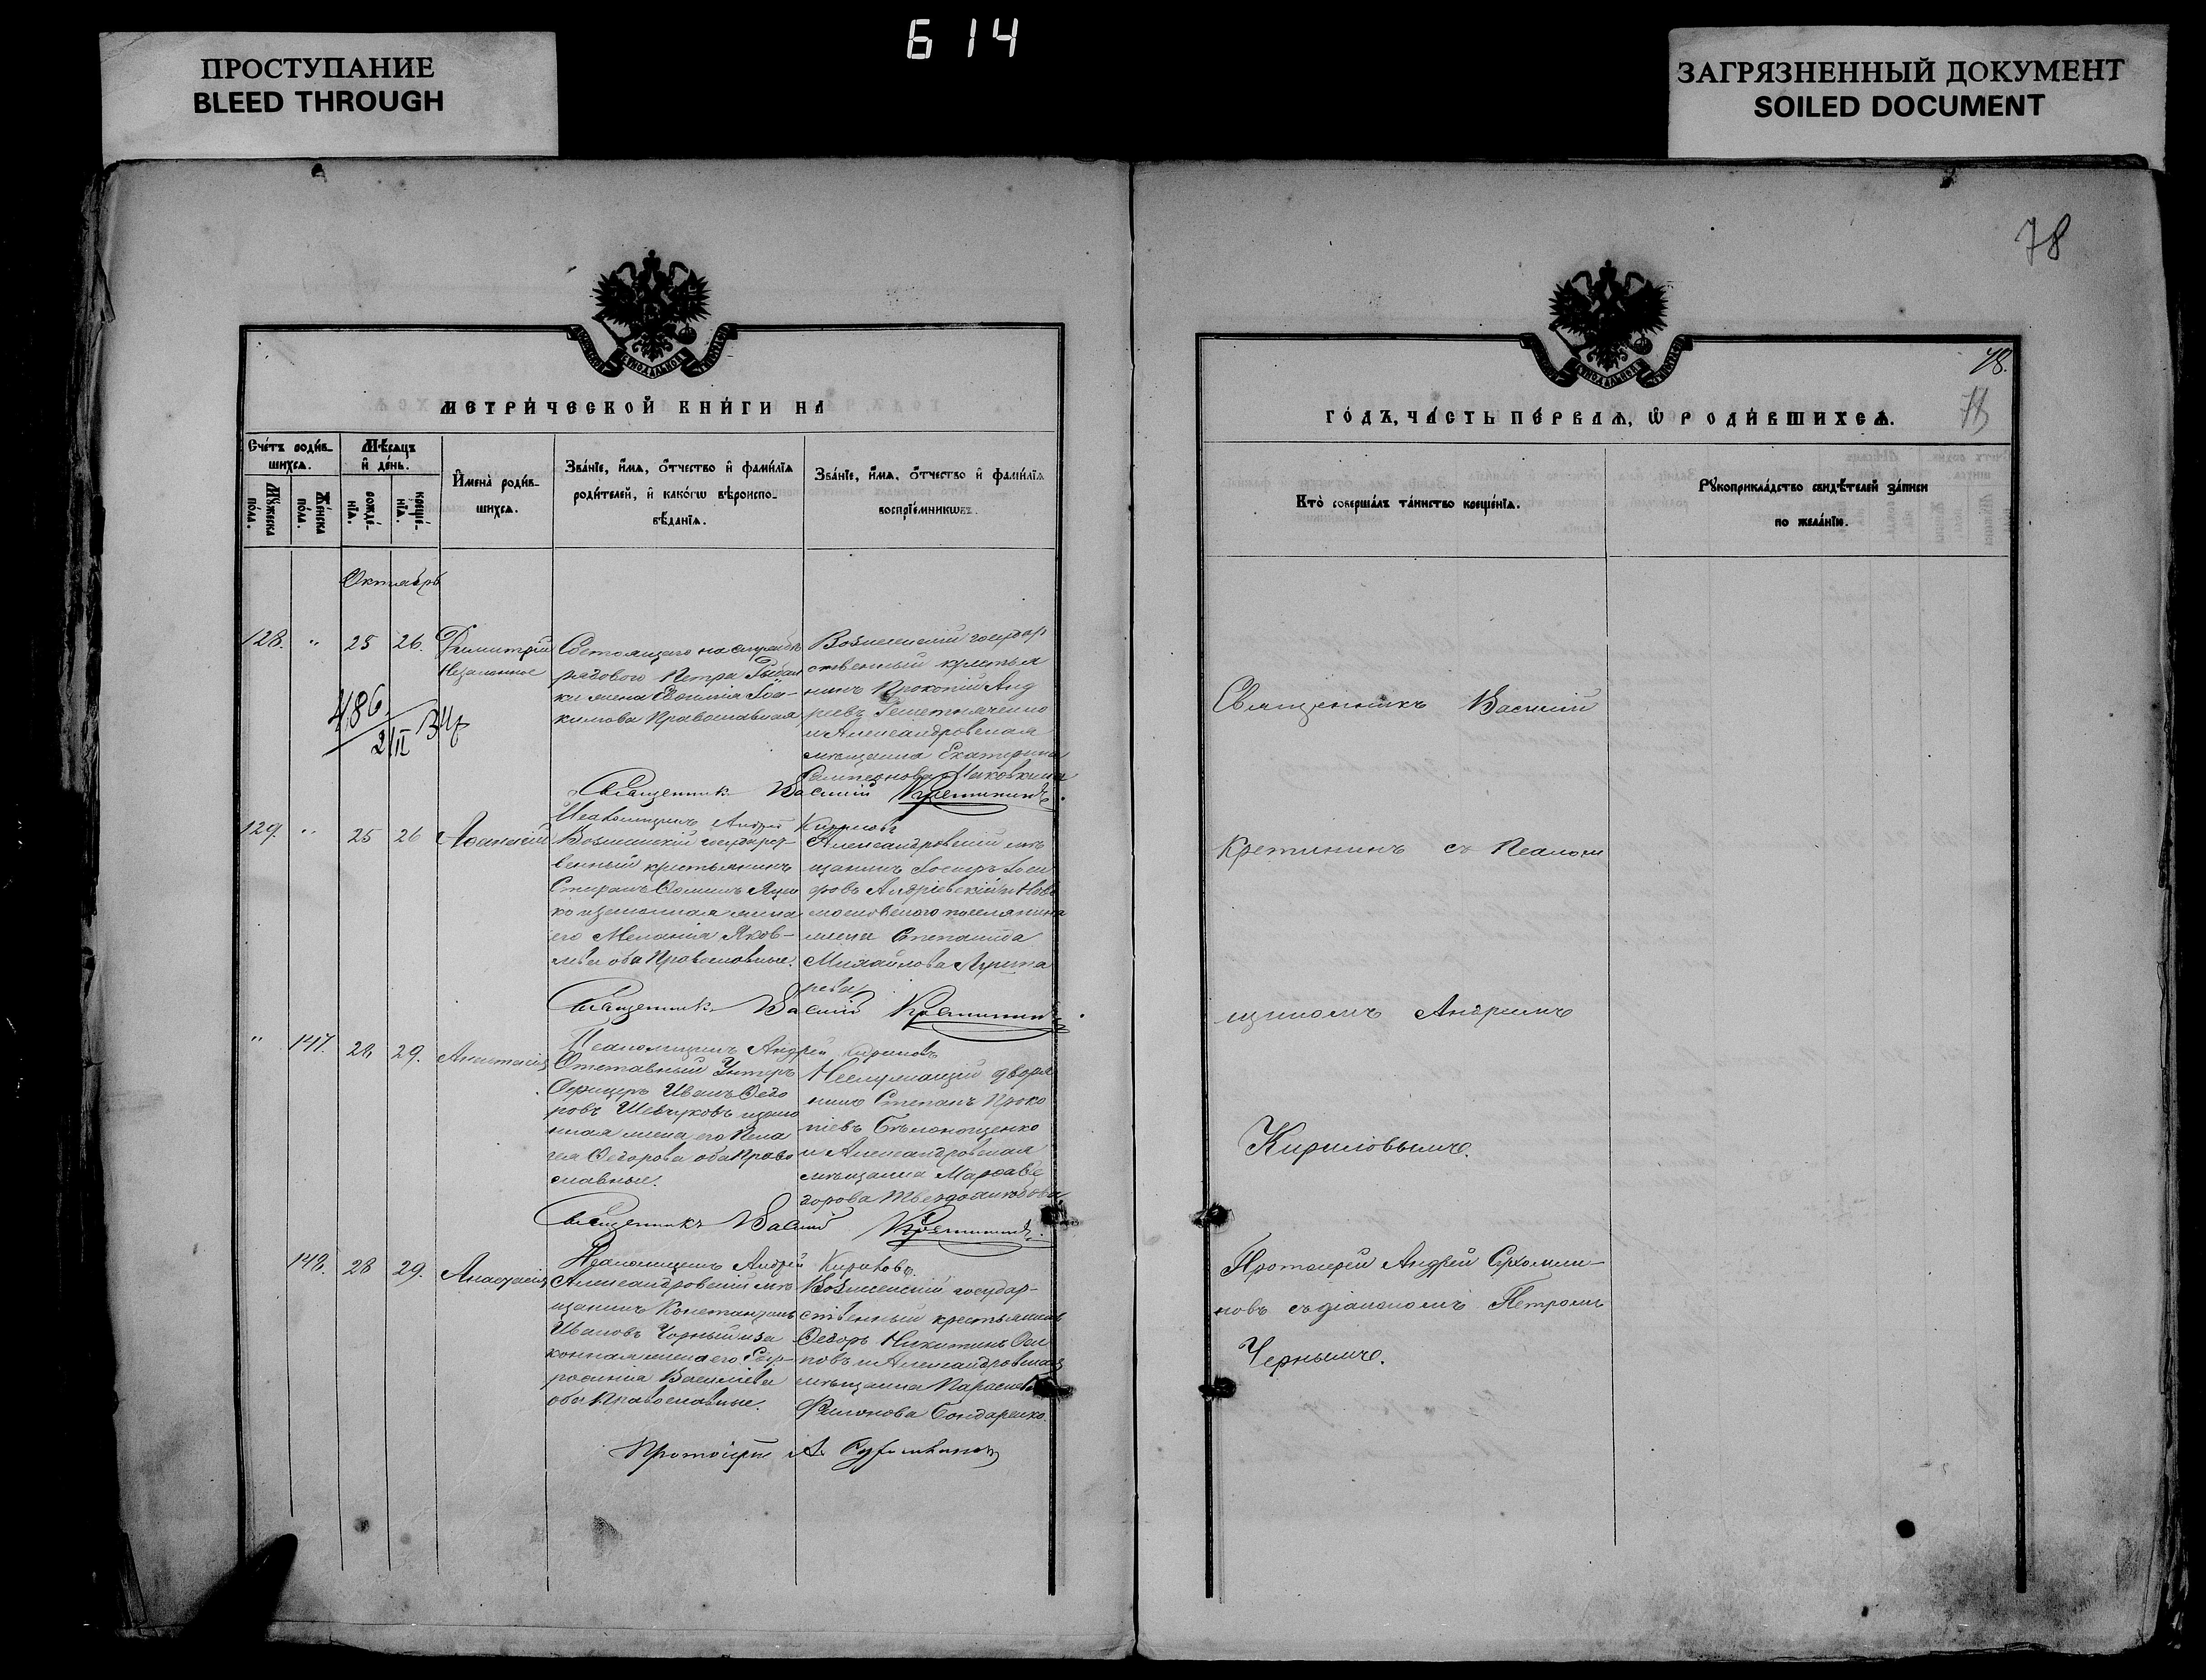 614
ПРОСТУПАНИЕ
BLEED THROUGH
ЗАГРЯЗНЕННЫЙ ДОКУМЕНТ
SOILED DOCUMENT
78
МЕТРИ́ЧЕСКОЙ КНИ́ГИ НА
Сче́тъ роди́в-
шихсѧ.
Мѣ́сѧцъ
и҆ де́нь.
Мꙋ́жеска
по́ла.
Же́нска
по́ла.
рожде́-
нїѧ.
креще́-
нїѧ.
И҆мена̀ роди́в-
шихсѧ.
Зва́нїе, и҆́мѧ, ѻ҆́тчество и҆ фами́лїѧ
роди́телей, и҆ како́гѡ вѣроиспо-
вѣ́данїѧ.
Зва́нїе, и҆́мѧ, ѻ҆́тчество и҆ фами́лїѧ
воспрїе́мникѡвъ.
Октябрь
128. " 25 26. Димитрий
Незаконное
Состоящаго на службѣ
рядового Петра
жена Іоа-
кимова Православная
486
2/II
Вознесенскій государ
ственный крестья
нинъ Прокопій Анд
реевъ
и Александровская
мѣщанка Екатерина
Священникъ Василий Кретининъ.
Псаломщикъ Андрей Кириловъ
129. " 25 26 Афанасій
Вознесенскій государст
венный крестьянинъ
законная жена
его Меланія Яков-
лева оба Православные.
Александровскій мѣ
щанинъ
Андріевскій и Ново
московского поселянина
жена Степанида
Михайлова
Священникъ Василий Кретининъ
Псаломщикъ Андрей Кириловъ
" 147. 28 29. Анастасія
Отставный Унтеръ
Офицеръ Иванъ Ѳедо
ровъ Шевчуковъ и зако
нная жена его Пела
гея Ѳедорова оба Право
славные.
Неслужащій дворя
нинъ Степанъ Проко
піевъ Бѣлоконценко
и Александровская
мѣщанка Марѳа Ѳе
дорова
Священникъ Василий Кретининъ.
Псаломщикъ Андрей Кириловъ.
148. 28 29. Анастасія
Александровскій мѣ
щанинъ Константинъ
Ивановъ Чорный и за
конная жена его Евф-
росинія Василіева
оба Православные.
Вознесенскій государ-
ственный крестьянинъ
Ѳедоръ Никитинъ
и Александровская
мѣщанка Параскева
Филонова Бондаренко.
Протоіерей А.
ГО́ДЪ, ЧА́СТЬ ПЕ́РВАѦ, Ѽ РОДИ́ВШИХСѦ.
78.
78
Кто̀ соверша́лъ та́инство креще́нїѧ.
Рꙋкоприкла́дство свидѣ́телей за́писи
по жела́нїю.
Священникъ Василий
Кретининъ съ Псалом
щикомъ Андреемъ
Кириловымъ.
Протоіерей Андрей
новъ съ діакономъ Петромъ
Чернымъ.